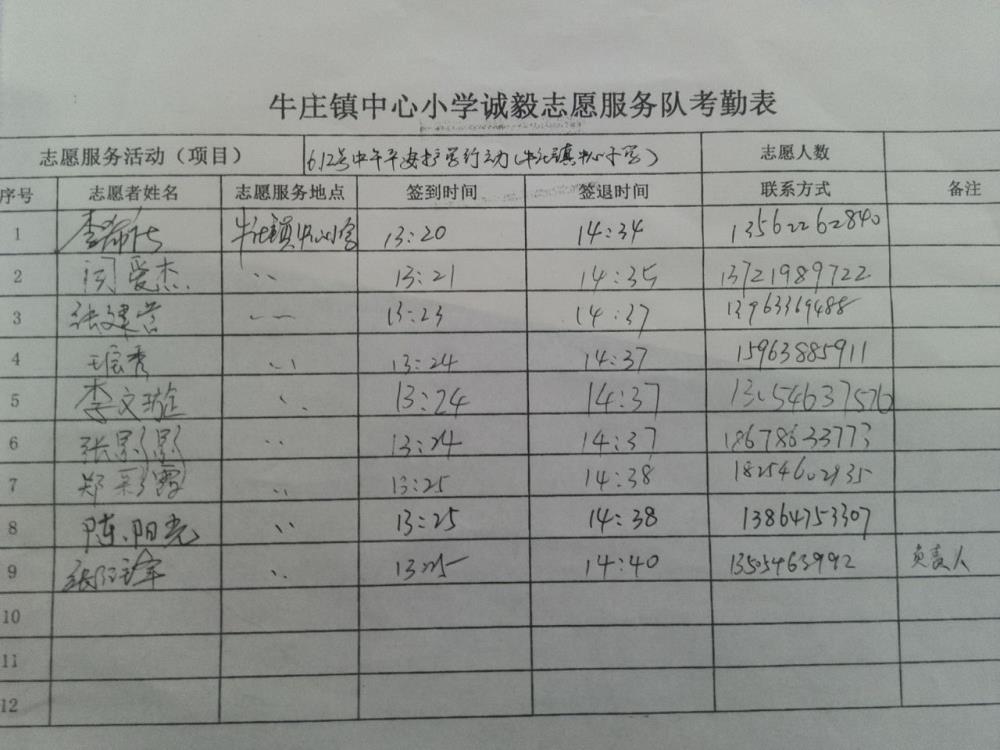 牛庄镇中心小学诚毅志愿服务队考勤表
志愿服务活动（项目） 6.12号中午平安护学行动（牛庄镇中心小学） 志愿人数
序号 志愿者姓名 志愿服务地点 签到时间 签退时间 联系方式 备注
1 牛庄镇中心小学 13:20 14:34 13562262840
2 闫爱杰 13:21 14:35 13721989722
3 张建营 13:23 14:37 13963369488
4 13:24 14:37 15963885911
5 李文璇 13:24 14:37 13054637576
6 张影影 13:24 14:37 18678633773
7 郑彩霞 13:25 14:38 18254602935
8 陈阳光 13:25 14:38 13864753307
9 13:25 14:40 13505463992 负责人
10
11
12